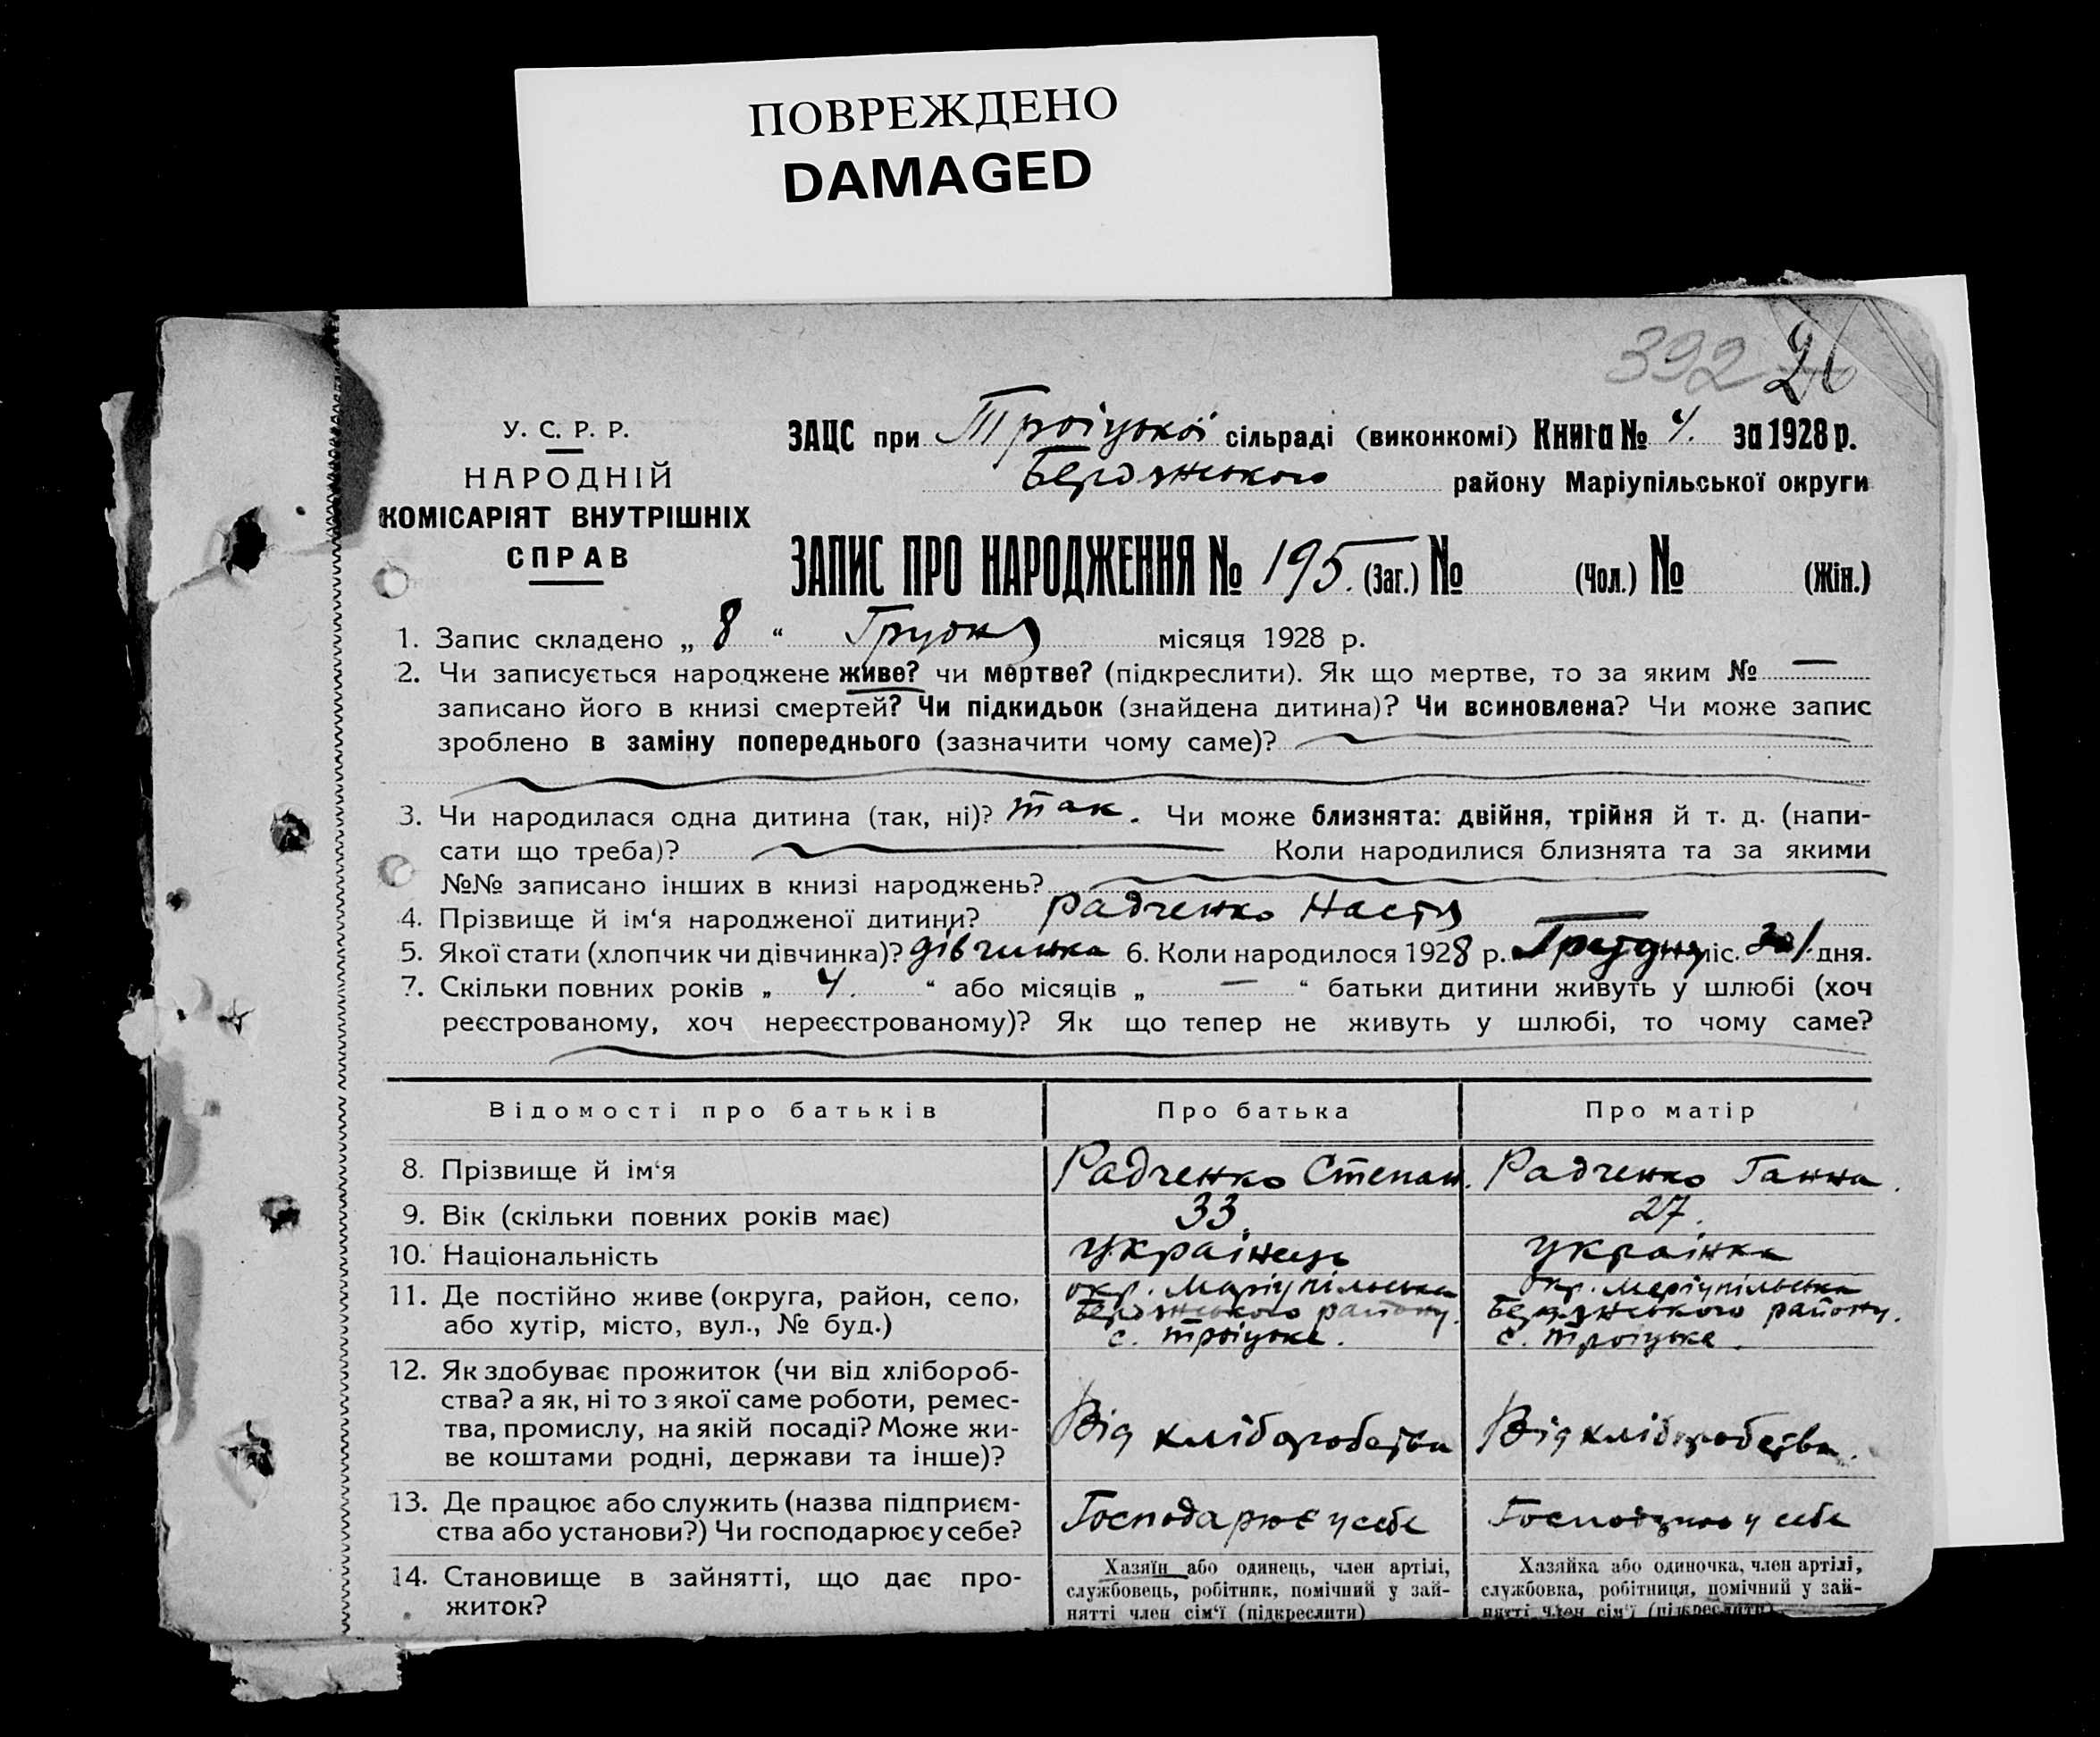 ПОВРЕЖДЕНО
DAMAGED
392
26
У. С. Р. Р.
НАРОДНІЙ
КОМІСАРІЯТ ВНУТРІШНІХ
СПРАВ
ЗАЦС при Троіцької сільраді (виконкомі) Книга № 4. за 1928 р.
Бердянського району Маріупільської округи
ЗАПИС ПРО НАРОДЖЕННЯ № 195. (Заг.) № (Чол.) № (Жін.)
1. Запис складено „ 8 “ Грудня місяця 1928 р.
2. Чи записується народжене живе? чи мертве? (підкреслити). Як що мертве, то за яким № —
записано його в книзі смертей? Чи підкидьок (знайдена дитина)? Чи всиновлена? Чи може запис
зроблено в заміну попереднього (зазначити чому саме)?
3. Чи народилася одна дитина (так, ні)? так. Чи може близнята: двійня, трійня й т. д. (напи-
сати що треба)? Коли народилися близнята та за якими
№№ записано інших в книзі народжень?
4. Прізвище й ім‘я народженої дитини? Радченко Настя
5. Якої стати (хлопчик чи дівчинка)? дівчинка 6. Коли народилося 1928 р. Грудня міс. дня.
7. Скільки повних років „ 4. “ або місяців „ — “ батьки дитини живуть у шлюбі (хоч
реєстрованому, хоч нереєстрованому)? Як що тепер не живуть у шлюбі, то чому саме?
Відомості про батьків Про батька Про матір
8. Прізвище й ім‘я Радченко Степан. Радченко Ганна.
9. Вік (скільки повних років має) 33. 27.
10. Національність українець українка
11. Де постійно живе (округа, район, село,
або хутір, місто, вул., № буд.)
окр. Маріупільська
Бердянського району.
с. Троіцьке.
окр. Маріупільська
Бердянського району.
с. Троіцьке.
12. Як здобуває прожиток (чи від хлібороб-
ства? а як, ні то з якої саме роботи, ремес-
тва, промислу, на якій посаді? Може жи-
ве коштами родні, держави та інше)?
Від хліборобства
Від хліборобства.
13. Де працює або служить (назва підприєм-
ства або установи?) Чи господарює у себе?
Господарює у себе
у себе
14. Становище в зайнятті, що дає про-
житок?
Хазяїн або одинець, член артілі,
службовець, робітник, помічний у зай-
нятті член сім‘ї (підкреслити)
Хазяйка або одиночка, член артілі,
службовка, робітниця, помічний у зай-
нятті член сім‘ї (підкреслити)